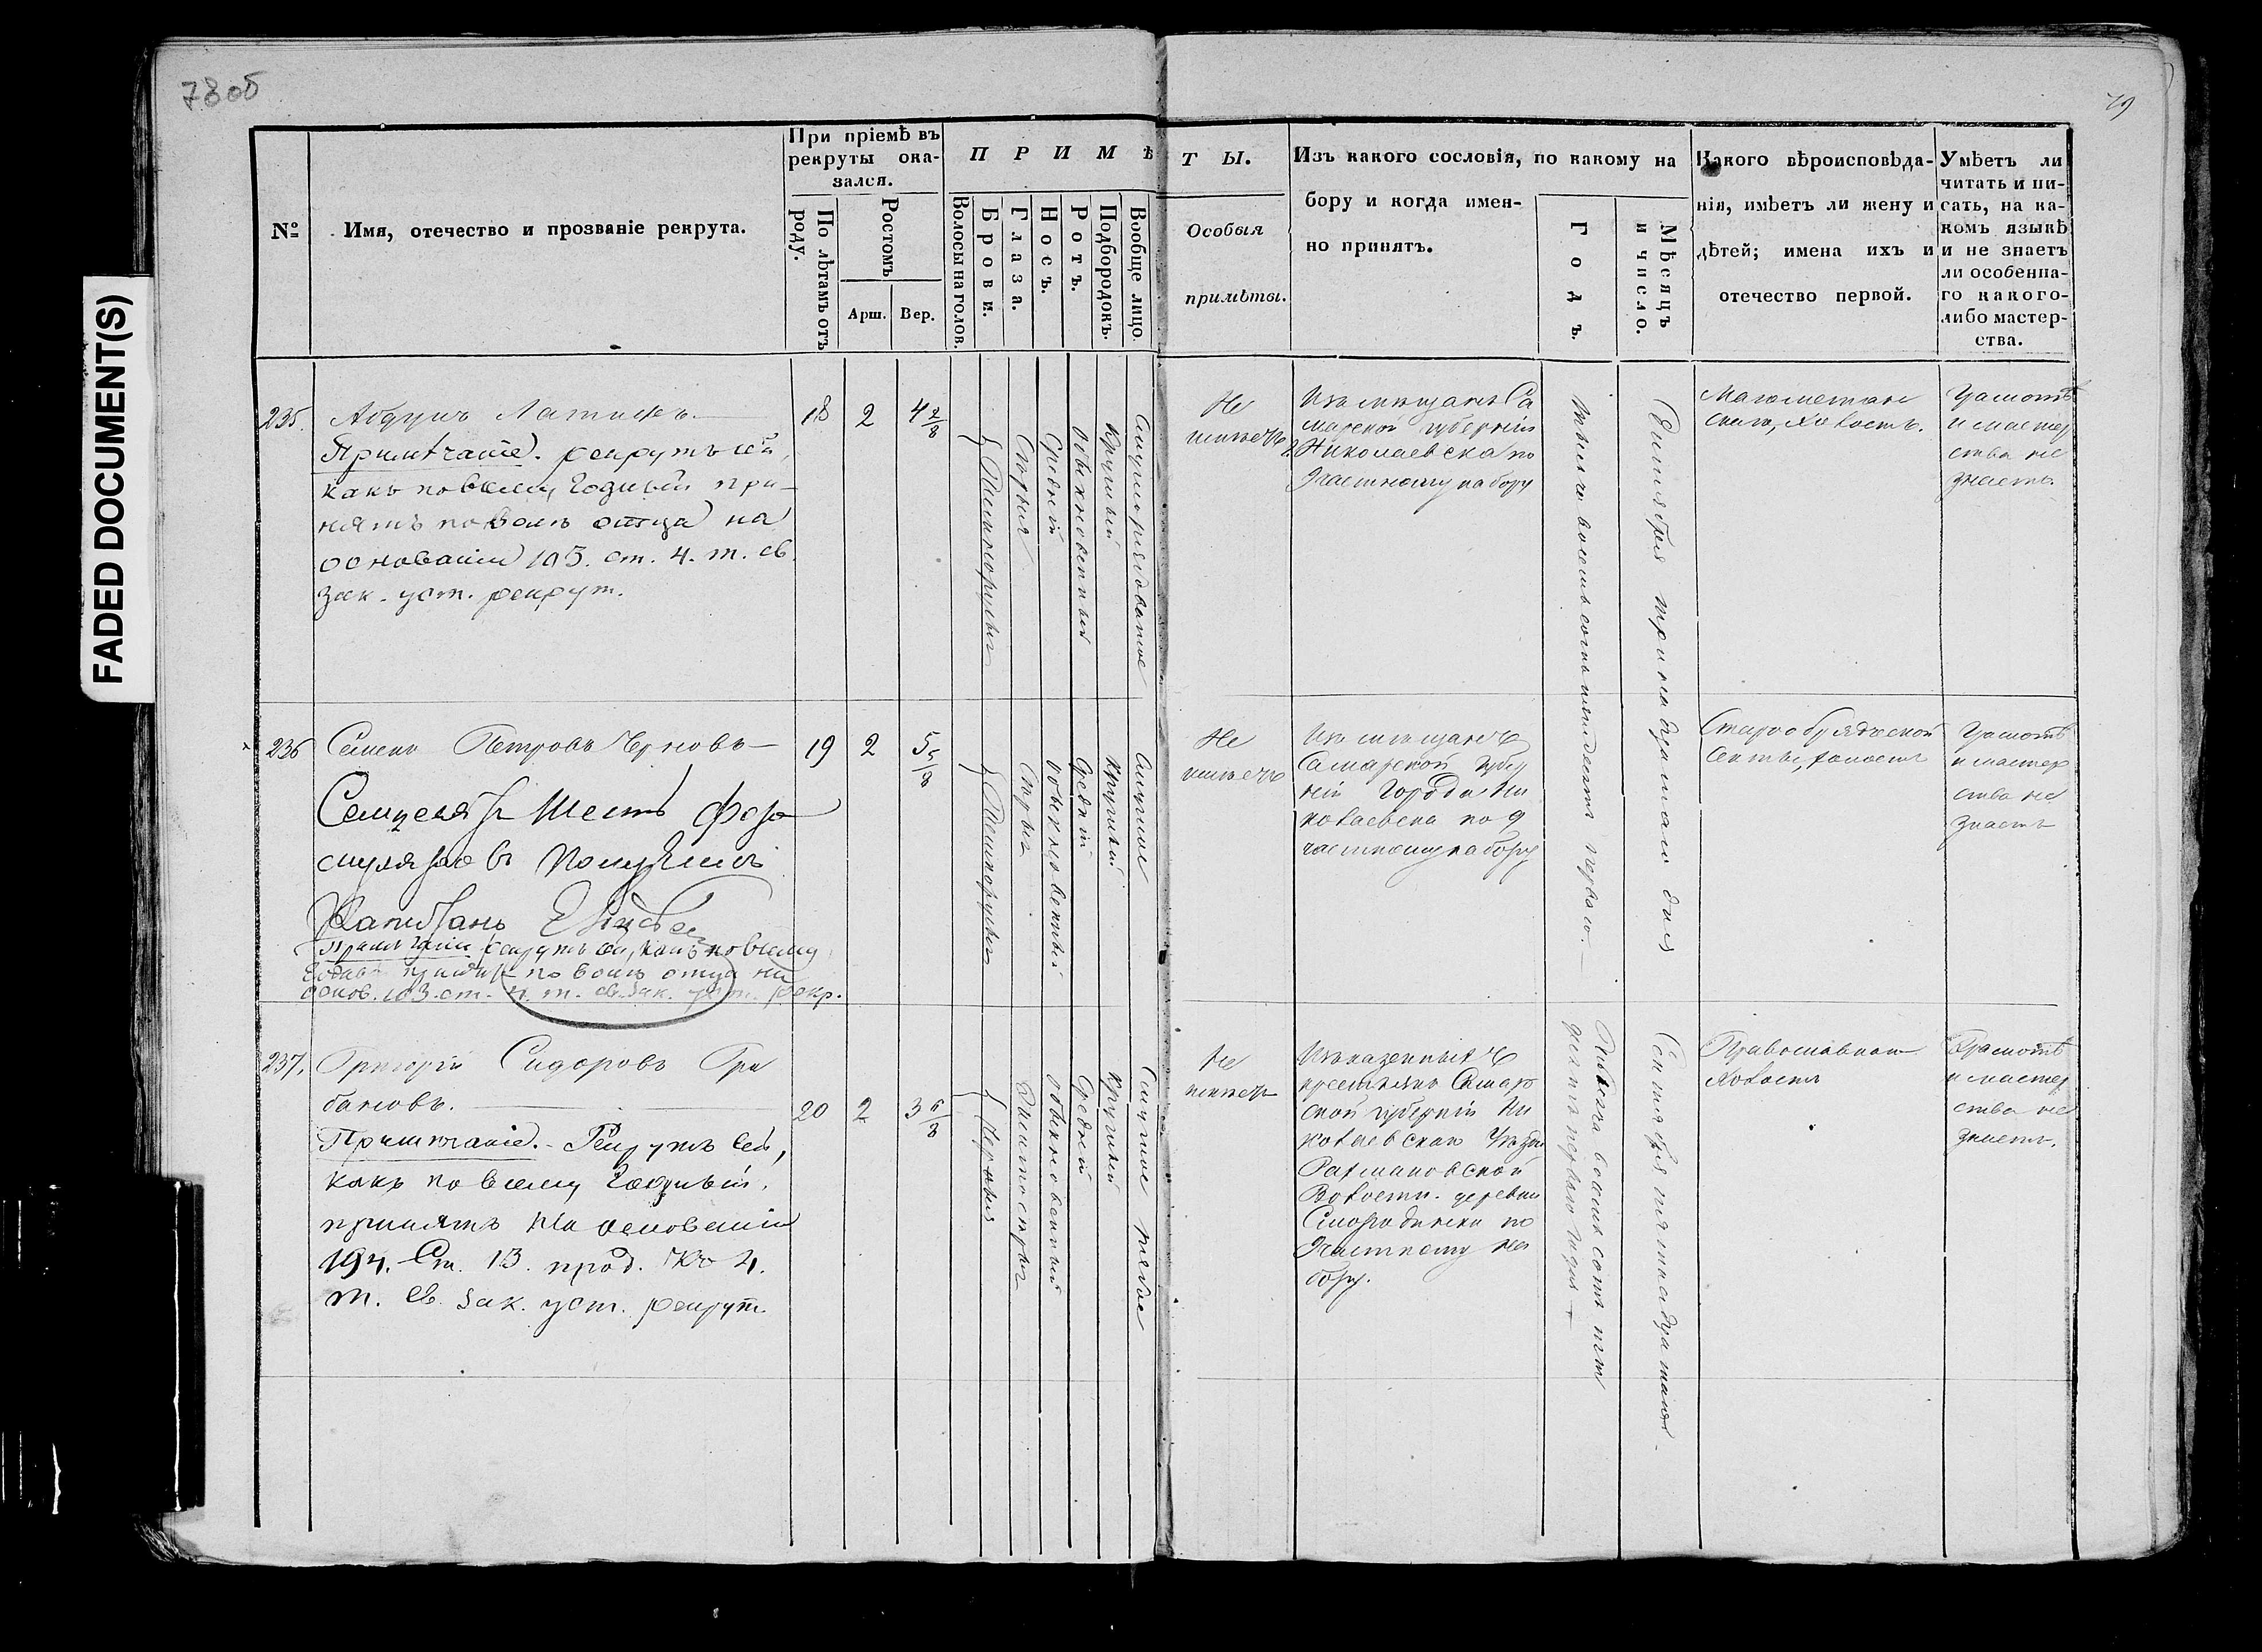 78об
79
FADED DOCUMENT(S)
№
Имя, отечество и прозваніе рекрута.
При пріемѣ въ
рекруты ока-
зался.
По лѣтамъ отъ
роду.
Ростомъ
Арш.
Вер.
ПРИМѢТЫ.
Волосы на голов.
Брови.
Глаза.
Носъ.
Ротъ.
Подбородокъ.
Вообще лицо.
Особыя
примѣты.
Изъ какого сословія, по какому на
бору и когда имен-
но принятъ.
Годъ.
Мѣсяцъ
и число.
Какого вѣроисповѣда-
нія, имѣетъ ли жену и
дѣтей; имена ихъ и
отечество первой.
Умѣетъ ли
читать и пи-
сать, на ка-
комъ языкѣ
и не знаетъ
ли особенна-
го какого-
либо мастер-
ства.
235.
Латифъ
Примѣчаніе. рекрутъ сей,
какъ по всему годный при-
нятъ по волѣ отца на
основаніи 105. ст. 4. т. св.
зак. уст. рекрут.
18
2
4 2/8
Темнорусыя
Сѣрыя
Средній
обыкновенный
Круглый
Не
имѣетъ
Изъ мѣщанъ Са
марской губерніи
г. Николаевска по
9 частному набору
тысяча восемьсотъ пятьдесятъ перваго.
Сентября тринадцатаго дня
Магометан
скаго, холостъ.
Грамотѣ
и мастер
ства не
знаетъ
236
Семенъ Петровъ Черновъ
Семдесятъ шесть фор
муляровъ получилъ
Капитанъ
Примѣчаніе рекрутъ сей, какъ по всему
годный принятъ по волѣ отца на
основ. 103. ст. 4. т. св. зак. уст. рекр.
19
2
5 5/8
Темнорусыя
Сѣрыя
обыкновенный
Средній
круглый
смуглое
Не
имѣетъ
Изъ мѣщанъ
Самарской губер
ніи Города Ни
колаевска по 9
частному набору
Старообрядческой
секты, холостъ
Грамотѣ
и мастер
ства не
знаетъ
237.
Григорій Сидоровъ Гри
бановъ.
Примѣчаніе. Рекрутъ сей,
какъ по всему годный,
принятъ на основаніи
194. Ст. 13. прод. къ 4.
т. св. зак. уст. рекрут.
20
2
3 6/8
Черныя
обыкновенный
Средній
круглый
Смуглое
Не
имѣетъ
Изъ казенныхъ
крестьянъ Самар
ской губерніи Ни
колаевскаго уѣзда
Рахмановской
Волости деревни
Смородинки по
9 частному на
бору.
Тысяча восемьсотъ пять
десятъ перваго года
Сентября пятнадцатаго
Православнаго
Холостъ
Грамотѣ
и мастер
ства не
знаетъ.